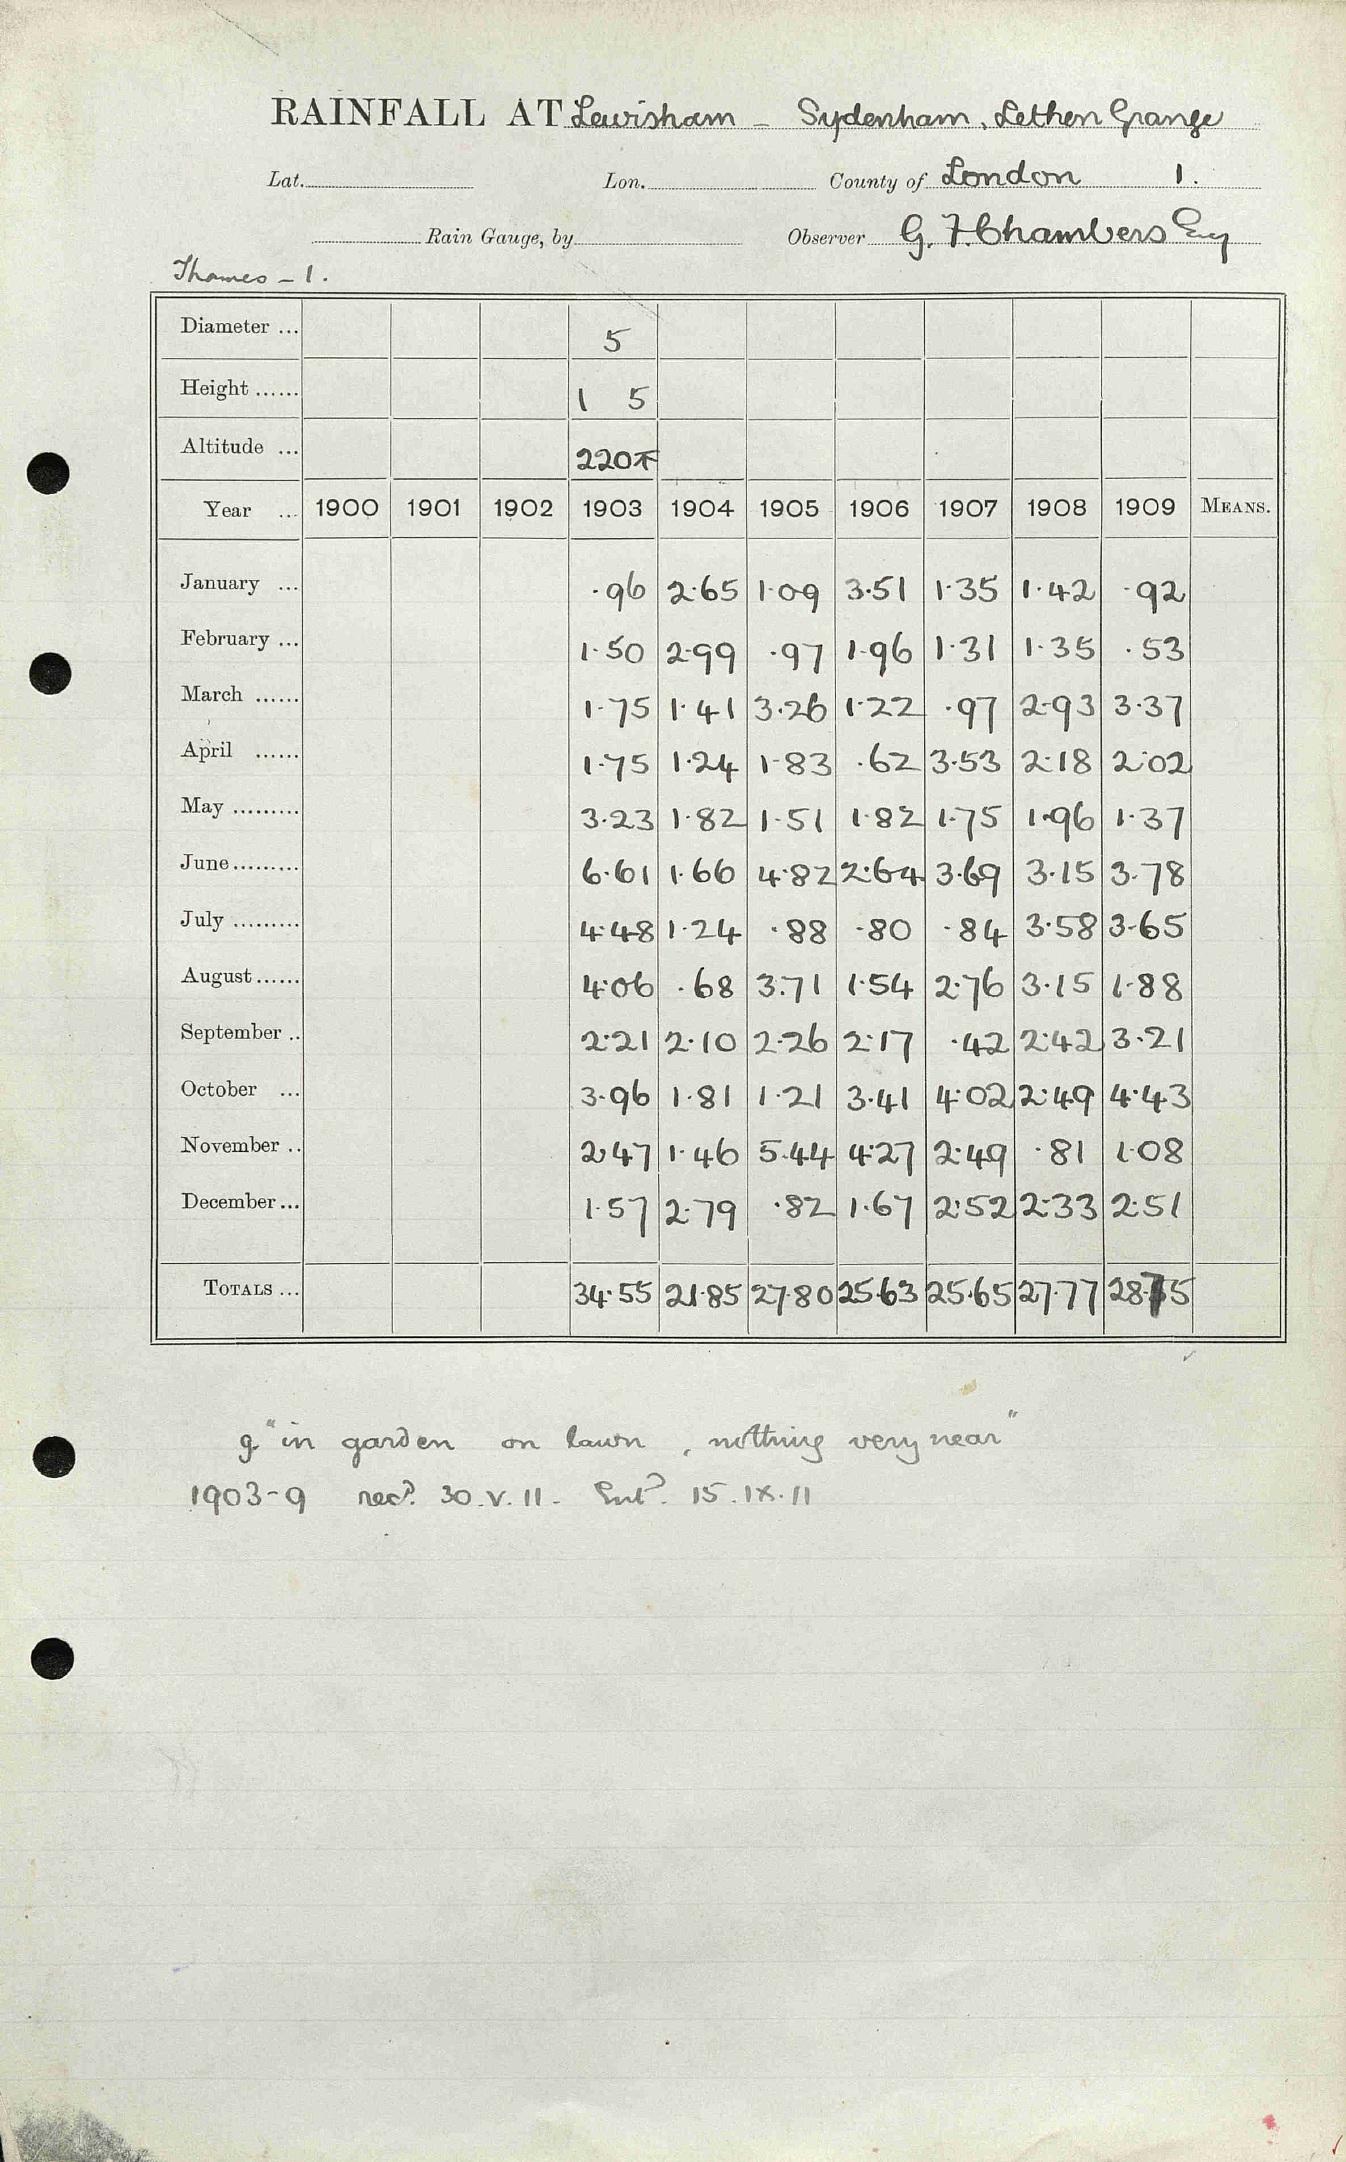 RAINFALL AT Lewisham – Sydenham, Lethen Grange
Lat. Lon. County of London 1.
Rain Gauge, by Observer G. F. Chambers Esq
Thames – 1.
Diameter ... 5
Height ...... 1 5
Altitude ... 220
Year ... 1900 1901 1902 1903 1904 1905 1906 1907 1908 1909 MEANS.
January ... ·96 2·65 1·09 3·51 1·35 1·42 ·92
February ... 1·50 2·99 ·97 1·96 1·31 1·35 ·53
March ...... 1·75 1·41 3·26 1·22 ·97 2·93 3·37
April ...... 1·75 1·24 1·83 ·62 3·53 2·18 2·02
May ......... 3·23 1·82 1·51 1·82 1·75 1·96 1·37
June ......... 6·61 1·66 4·82 2·64 3·69 3·15 3·78
July ......... 4·48 1·24 ·88 ·80 ·84 3·58 3·65
August ...... 4·06 ·68 3·71 1·54 2·76 3·15 1·88
September .. 2·21 2·10 2·26 2·17 ·42 2·42 3·21
October ... 3·96 1·81 1·21 3·41 4·02 2·49 4·43
November .. 2·47 1·46 5·44 4·27 2·49 ·81 1·08
December ... 1·57 2·79 ·82 1·67 2·52 2·33 2·51
TOTALS ... 34·55 21·85 27·80 25·63 25·65 27·77 28·75
g "in garden on lawn, nothing very near"
1903-9 recd. 30.V.11. Entd. 15.IX.11